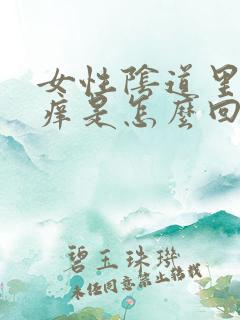 女性陰道里
痒是怎麽回
碧玉珠璣
未经同意禁止搭载